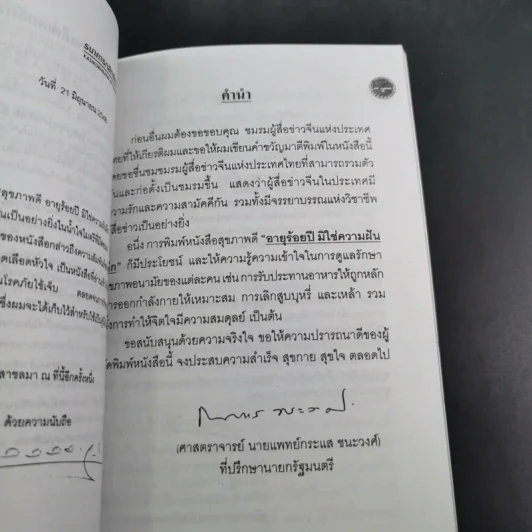 วันที่ 21 มิถุนายน
สุขภาพดี อายุร้อยปี มิใช่ความฝัน
เป็นอย่างยิ่งในน้ำใจไมตรี
ของหนังสือกล่าวถึงความ
เลือดหัวใจ เป็นหนังสือที่อ่าน
โรคภัยไข้เจ็บ ตลอดจน
ซึ่งผมจะได้เก็บไว้สำหรับใช้เป็น
ณ ที่นี้อีกครั้งหนึ่ง
ด้วยความนับถือ
คำนำ
ก่อนอื่นผมต้องขอขอบคุณ ชมรมผู้สื่อข่าวจีนแห่งประเทศ
ไทยที่ให้เกียรติผมและขอให้ผมเขียนคำขวัญมาตีพิมพ์ในหนังสือนี้
ขอชื่นชมชมรมผู้สื่อข่าวจีนแห่งประเทศไทยที่สามารถรวมตัว
กันและก่อตั้งเป็นชมรมขึ้น แสดงว่าผู้สื่อข่าวจีนในประเทศมี
ความรักและความสามัคคีกัน รวมทั้งมีจรรยาบรรณแห่งวิชาชีพ
สื่อข่าวเป็นอย่างยิ่ง
อนึ่ง การพิมพ์หนังสือสุขภาพดี "อายุร้อยปี มิใช่ความฝัน
ก็มีประโยชน์ และให้ความรู้ความเข้าใจในการดูแลรักษา
สุขภาพอนามัยของแต่ละคน เช่น การรับประทานอาหารให้ถูกหลัก
การออกกำลังกายให้เหมาะสม การเลิกสูบบุหรี่ และเหล้า รวม
ทั้งการทำให้จิตใจมีความสมดุลย์ เป็นต้น
ขอสนับสนุนด้วยความจริงใจ ขอให้ความปรารถนาดีของผู้
จัดพิมพ์หนังสือนี้ จงประสบความสำเร็จ สุขกาย สุขใจ ตลอดไป
(ศาสตราจารย์ นายแพทย์กระแส ชนะวงศ์)
ที่ปรึกษานายกรัฐมนตรี